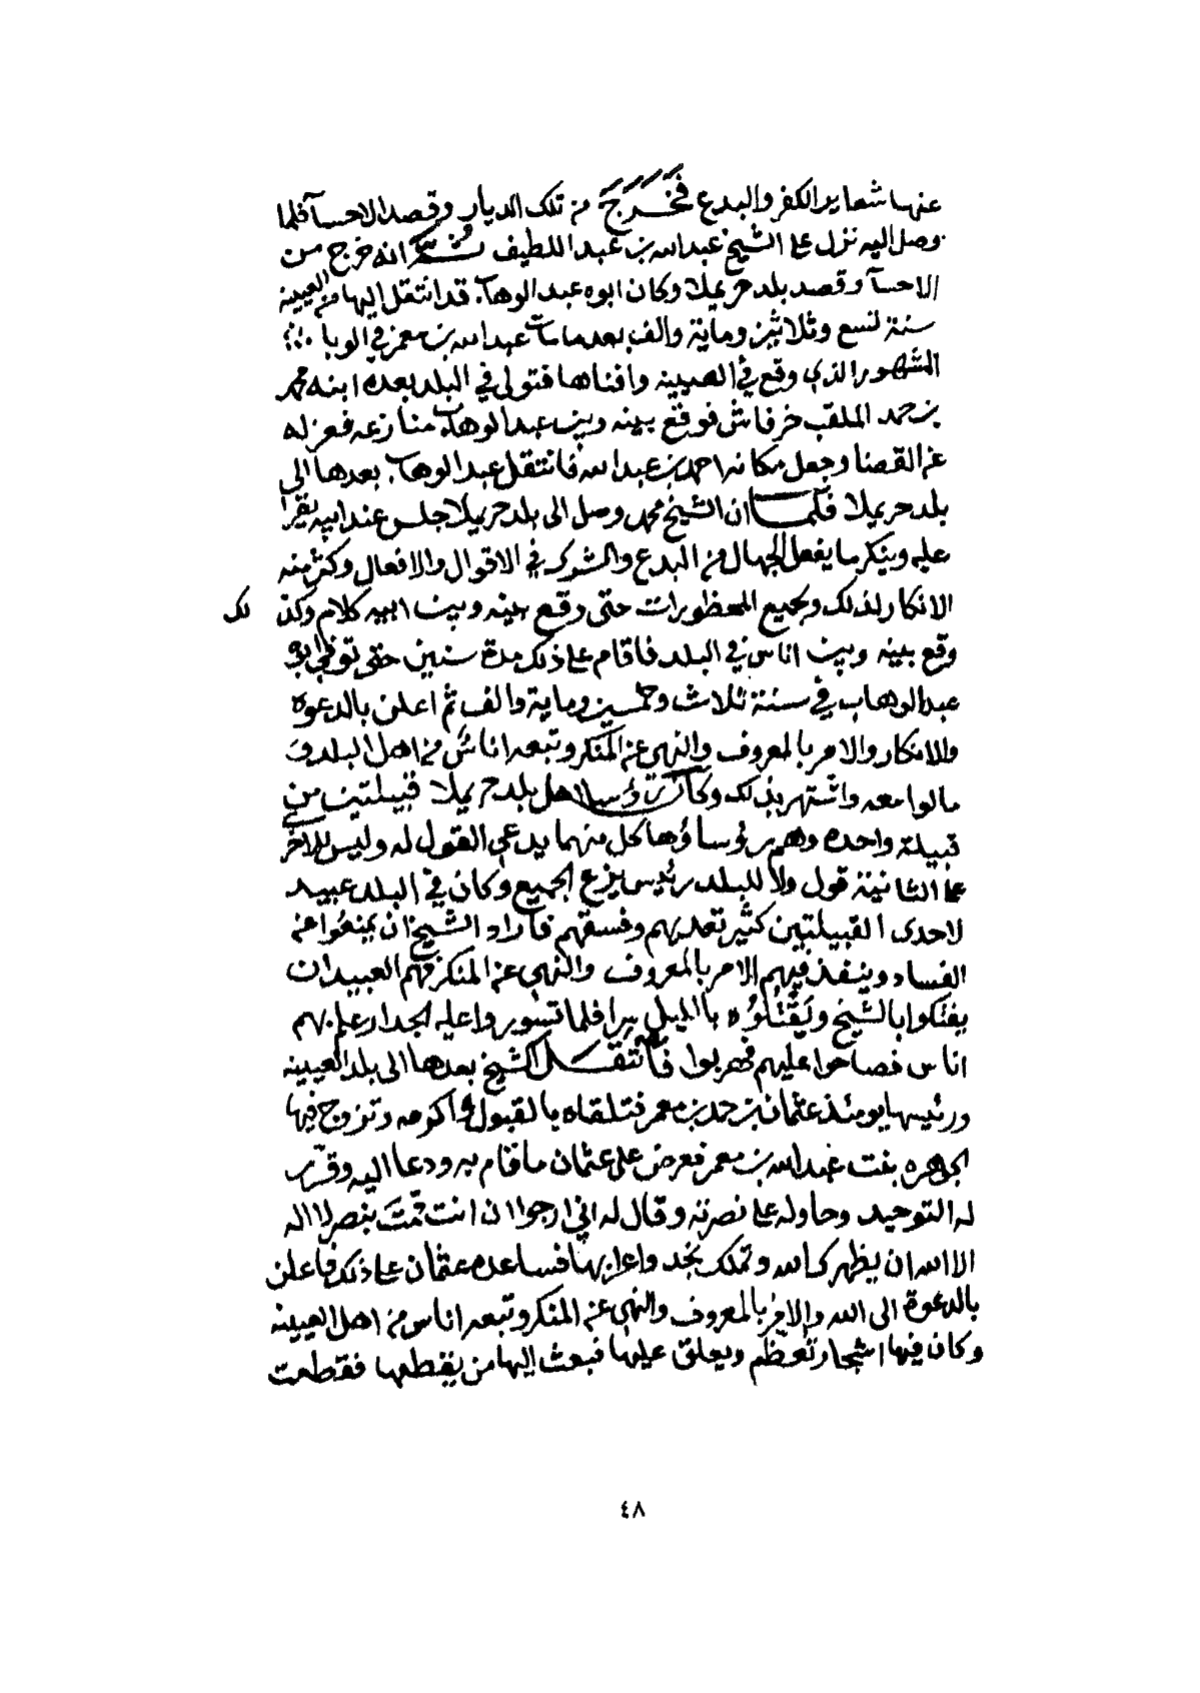 عنها شعاير الكفر والبدع فَخَرَجَ من تلك الديار وقصد الاحسآ فلما
وصل اليه نزل على الشيخ عبدالله بن عبد اللطيف ثُمَّ انه خرج من
الاحسآ وقصد بلد حريملا وكان ابوه عبد الوهاب قد انتقل اليها من العيينه
سنة تسع وثلاثين وماية والف بعد مامات عبدالله بن معمر في الوبا
المشهور الذي وقع في العيينه وافناها فتولى في البلد بعده ابنه محمد
بن حمد الملقب خرفاش فوقع بينه وبين عبد الوهاب منازعه فعزله
عن القضا وجعل مكانه احمد بن عبدالله فانتقل عبد الوهاب بعدها الى
بلد حريملا فلما ان الشيخ محمد وصل الى بلد حريملا جلس عند ابيه يقرا
عليه وينكر ما يفعل الجهال من البدع والشرك في الاقوال والافعال وكثر منه
الانكار لذلك ولجميع المحظورات حتى وقع بينه وبين ابيه كلام وكذ لك
وقع بينه وبين اناس في البلد فاقام على ذلك مدة سنين حتى توفي ابوه
عبد الوهاب في سنة ثلاث وخمسين وماية والف ثم اعلن بالدعوه
والانكار والامر بالمعروف والنهي عن المنكر وتبعه اناسٌ من اهل البلد و
مالوا معه واشتهر بذلك وكان رؤسا اهل بلد حريملا قبيلتين من
قبيلة واحده وهم رؤساؤها كل منهما يدعي القول له وليس للاخر
على الثانية قول ولا للبلد رئيس يزع الجميع وكان في البلد عبيد
لاحدى القبيلتين كثير تعديهم وفسقهم فاراد الشيخ ان يمنعوا عن
الفساد وينفذ فيهم الامر بالمعروف والنهي عن المنكر فهم العبيد ان
يفتكوا بالشيخ ويَقْتُلُوُه بالليل سرا فلما تسوروا عليه الجدار علم بهم
اناس فصاحوا عليهم فهربوا فانتقل الشيخ بعدها الى بلد العيينه
ورئيسها يومئذ عثمان بن حمد بن معمر فتلقاه بالقبول واكرمه وتزوج فيها
الجوهره بنت عبدالله بن معمر فعرض على عثمان ما قام به ودعا اليه وقرّر
له التوحيد وحاوله على نصرته وقال له اني ارجوا ان انت قمتَ بنصر لا اله
الا الله ان يظهرك الله وتملك نجد واعرابها فساعده عثمان على ذلك فاعلن
بالدعوة الى الله والامر بالمعروف والنهي عن المنكر وتبعه اناس من اهل العيينه
وكان فيها اشجار تعظم ويعلق عليها فبعث اليها من يقطعها فقطعت
٤٨